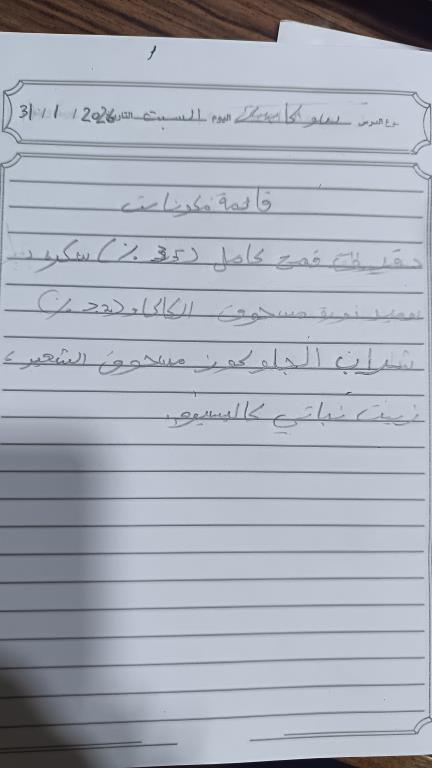 اليوم السبت التاريخ 31/1/2026
قائمة مكونات
دقيق قمح كامل (35٪) سكر
مسحوق الكاكاو (22٪)
شراب الجلوكوز مسحوق الشعير،
زيت نباتي كالسيوم.